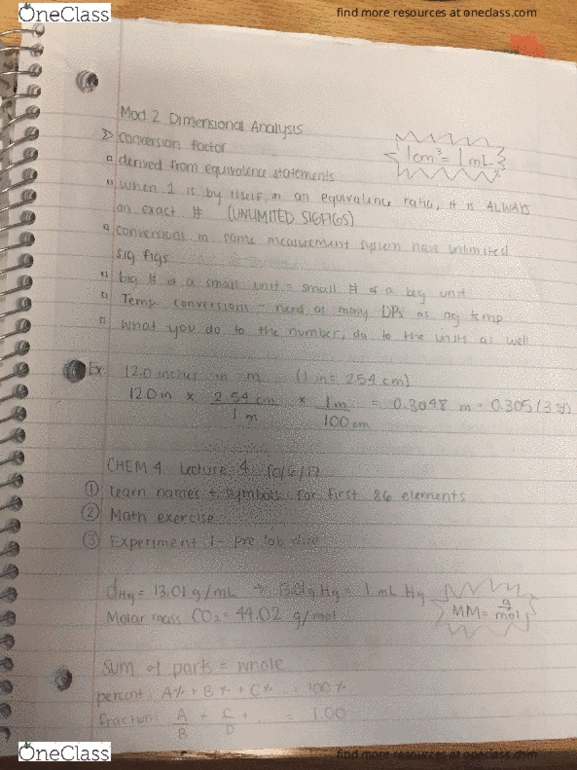 OneClass
find more resources at oneclass.com
Mod. 2 Dimensional Analysis
conversion factor
1cm³ = 1mL
derived from equivalence statements
when 1 is by itself in an equivalence ratio, it is ALWAYS
an exact # (UNLIMITED SIGFIGS)
conversions in same measurement system have unlimited
sig figs
big # of a small unit = small # of a big unit
Temp. conversions - need as many DPs as og temp
what you do to the number, do to the units as well
Ex: 12.0 inches in m (1 in = 2.54 cm)
12.0 in × 2.54 cm × 1m = 0.3048 m = 0.305
1 in 100 cm
CHEM 4 Lecture 4 10/6/17
① learn names + symbols for first 86 elements
② Math exercise
③ Experiment 1 - pre lab due
dHg = 13.01 g/mL → 13.01g Hg = 1 mL Hg
MM = g/mol
Molar mass CO₂ = 44.02 g/mol
Sum of parts = whole
percent: A% + B% + C% = 100%
fraction: A + C + = 1.00
B D
OneClass
find more resources at oneclass.com